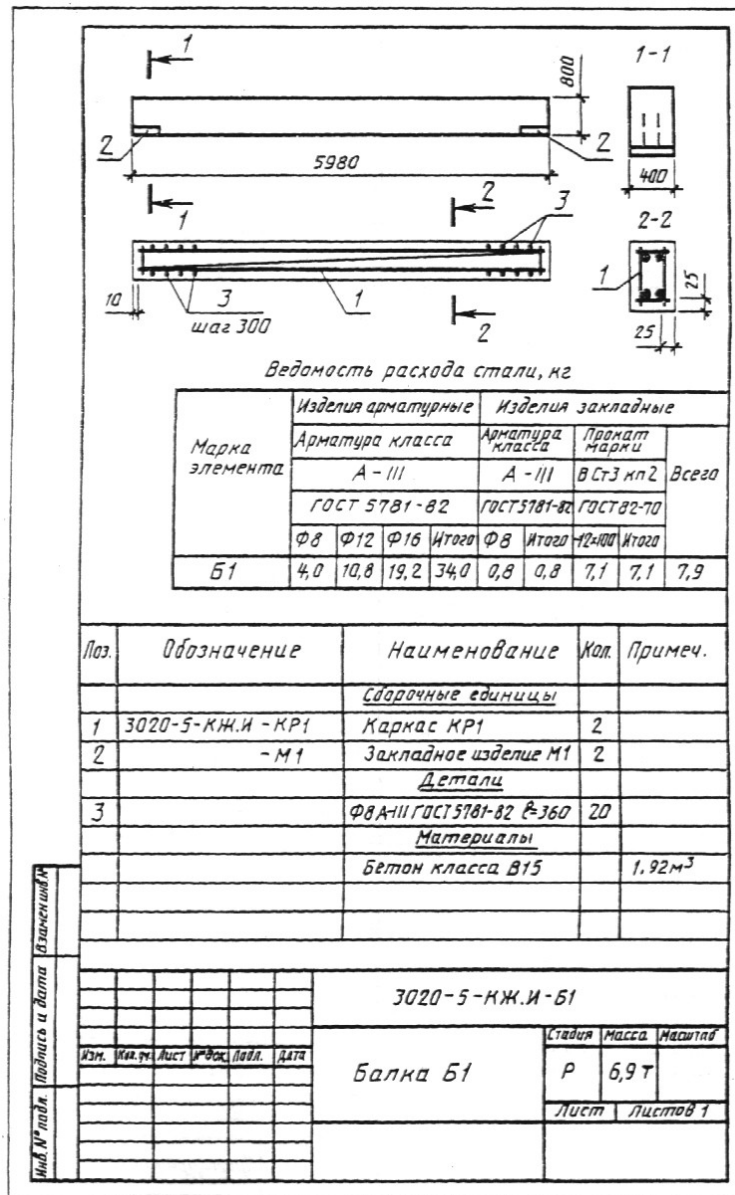 1
1-1
800
2
2
5980
400
1
2
3
2-2
10
3
шаг 300
1
2
1
25
25
Ведомость расхода стали, кг
Марка элемента
Изделия арматурные
Изделия закладные
Арматура класса
Арматура класса
Прокат марки
Всего
А-III
А-III
ВСт3 кп2
ГОСТ 5781-82
ГОСТ5781-82
ГОСТ82-70
Ф8 Ф12 Ф16 Итого Ф8 Итого -12×100 Итого
Б1 4,0 10,8 19,2 34,0 0,8 0,8 7,1 7,1 7,9
Поз. Обозначение Наименование Кол. Примеч.
Сборочные единицы
1 3020-5-КЖ.И-КР1 Каркас КР1 2
2 -М1 Закладное изделие М1 2
Детали
3 Ф8А-III ГОСТ5781-82 ℓ=360 20
Материалы
Бетон класса В15 1,92м³
Взамен инв.№
Подпись и дата
Инв.№ подл.
3020-5-КЖ.И-Б1
Изм. Кол.уч. Лист №док. Подп. Дата
Балка Б1
Стадия Масса Масштаб
Р 6,9 т
Лист Листов 1